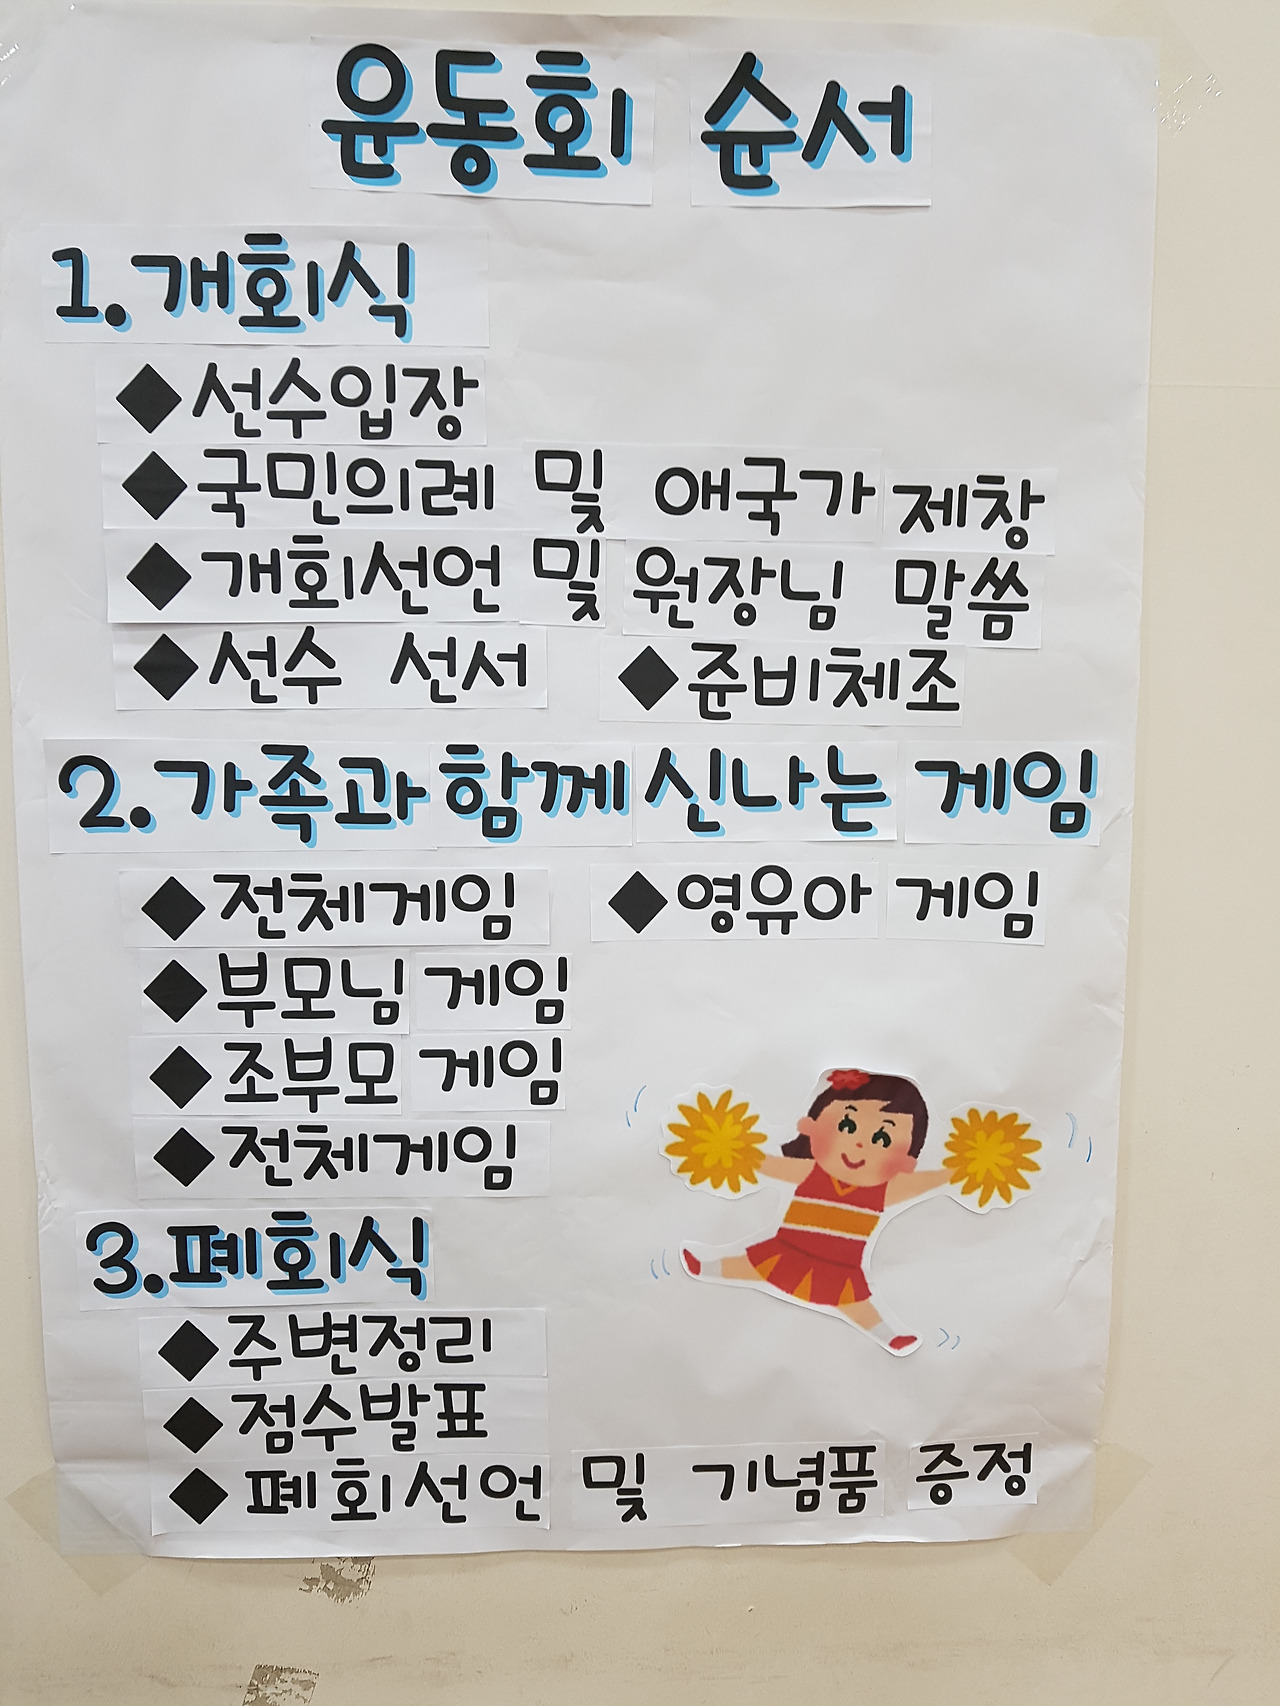 운동회 순서
1. 개회식
◆선수입장
◆국민의례 및 애국가 제창
◆개회선언 및 원장님 말씀
◆선수 선서 ◆준비체조
2. 가족과 함께 신나는 게임
◆전체게임 ◆영유아 게임
◆부모님 게임
◆조부모 게임
◆전체게임
3.폐회식
◆주변정리
◆점수발표
◆폐회선언 및 기념품 증정